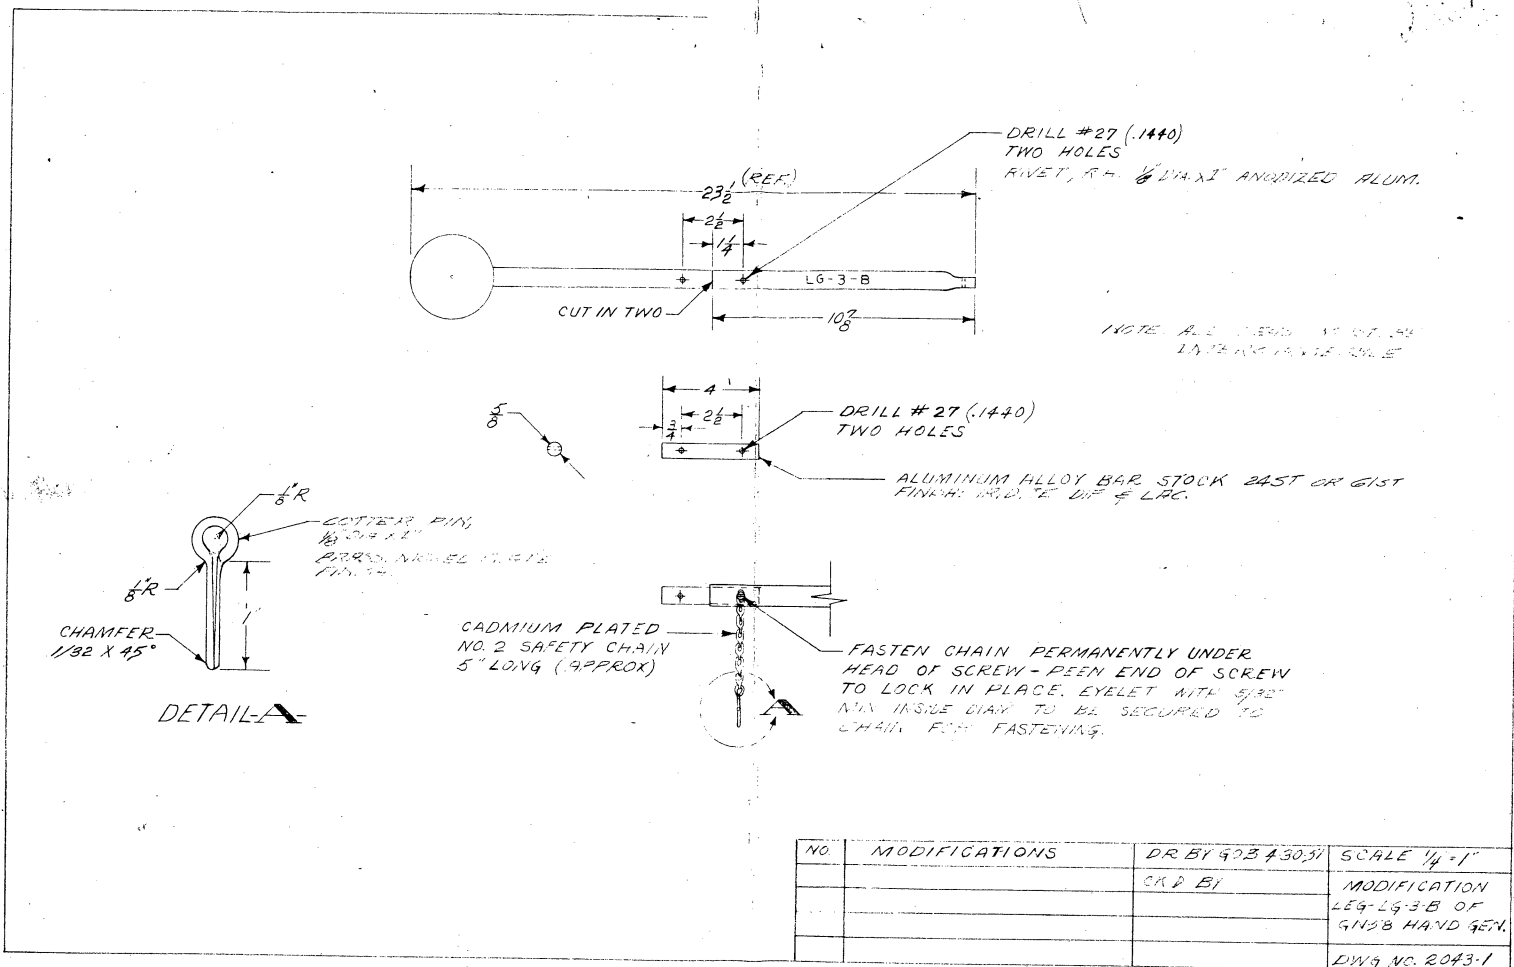 DRILL #27 (.1440)
TWO HOLES
RIVET, R.H. 1/8" DIA X 1" ANODIZED ALUM.
(REF.)
23 1/2
2 1/2
1 1/4
LG-3-B
CUT IN TWO
10 7/8
NOTE: ALL
4
2 1/2
3/4
5/8
DRILL #27 (.1440)
TWO HOLES
ALUMINUM ALLOY BAR STOCK 24ST OR 61ST
FINISH: & LAC.
1/8" R
COTTER PIN,
1/8" DIA X 1"
BRASS, NICKEL PLATE
FINISH.
1/8" R
1"
CHAMFER
1/32 X 45°
DETAIL-A-
CADMIUM PLATED
NO. 2 SAFETY CHAIN
5" LONG (APPROX)
FASTEN CHAIN PERMANENTLY UNDER
HEAD OF SCREW - PEEN END OF SCREW
TO LOCK IN PLACE. EYELET WITH 5/32"
MIN INSIDE DIAM TO BE SECURED TO
CHAIN FOR FASTENING.
A
NO. MODIFICATIONS DR BY GOB 4 30 51 SCALE 1/4 = 1"
CK'D BY
MODIFICATION
LEG-LG-3-B OF
GN58 HAND GEN.
DWG NO. 2043-1